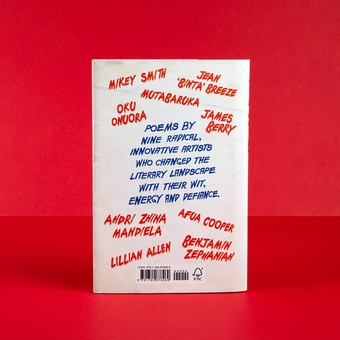 MIKEY SMITH
JEAN
'BINTA' BREEZE
MUTABARUKA
OKU
ONUORA
JAMES
BERRY
POEMS BY
NINE RADICAL,
INNOVATIVE ARTISTS
WHO CHANGED THE
LITERARY LANDSCAPE
WITH THEIR WIT,
ENERGY AND DEFIANCE.
AHDRI ZHINA
MANDIELA
AFUA COOPER
LILLIAN ALLEN
BENJAMIN
ZEPHANIAH
FSC